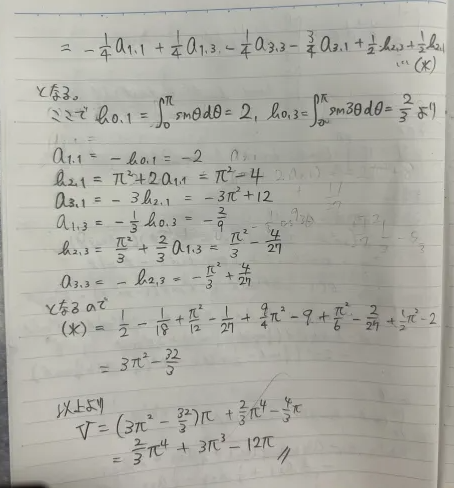 = -1/4 a1,1 + 1/4 a1,3 - 1/4 a3,3 - 3/4 a3,1 + 1/2 b2,3 + 1/2 b2,1
… (*)
となる。
ここで b0,1 = ∫0^π sinθdθ = 2, b0,3 = ∫0^π sin3θdθ = 2/3 より
a1,1 = -b0,1 = -2
b2,1 = π² + 2a1,1 = π² - 4
a3,1 = -3b2,1 = -3π² + 12
a1,3 = -1/3 b0,3 = -2/9
b2,3 = π²/3 + 2/3 a1,3 = π²/3 - 4/27
a3,3 = -b2,3 = -π²/3 + 4/27
となるので
(*) = 1/2 - 1/18 + π²/12 - 1/27 + 9/4 π² - 9 + π²/6 - 2/27 + 1/2 π² - 2
= 3π² - 32/3
以上より
V = (3π² - 32/3)π + 2/3 π⁴ - 4/3 π
= 2/3 π⁴ + 3π³ - 12π //